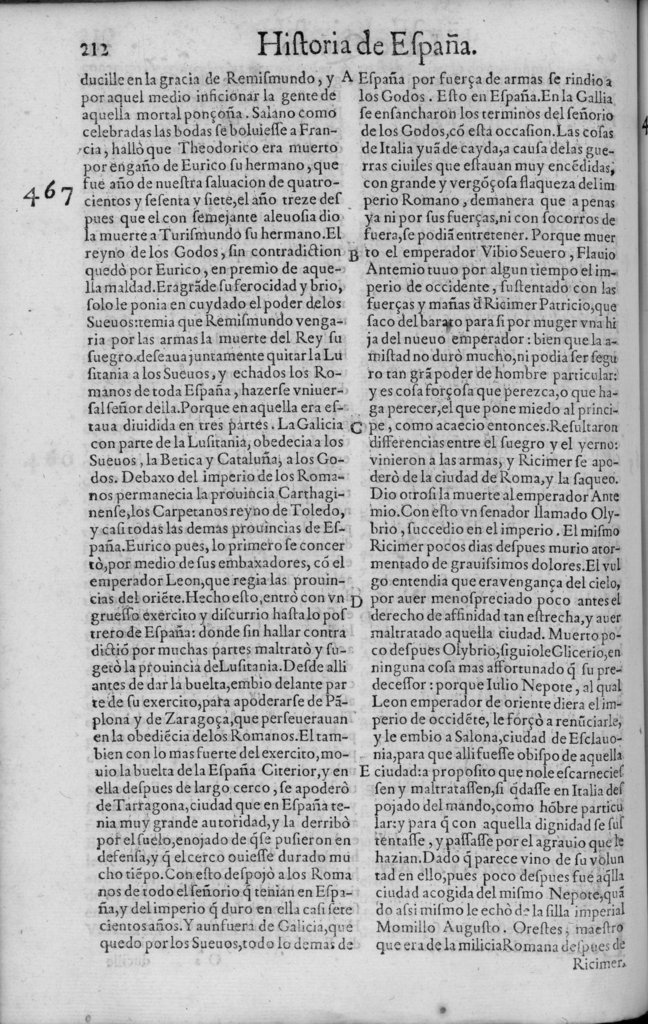 212
Historia de España.
ducille en la gracia de Remismundo, y
por aquel medio inficionar la gente de
aquella mortal ponçoña. Salano como
celebradas las bodas se boluiesse a Fran-
cia, hallò que Theodorico era muerto
por engaño de Eurico su hermano, que
467
fue año de nuestra saluacion de quatro-
cientos y sesenta y siete, el año treze des
pues que el con semejante aleuosia dio
la muerte a Turismundo su hermano. El
reyno de los Godos, sin contradiction
quedò por Eurico, en premio de aque-
lla maldad. Eragrãde su ferocidad y brio,
solo le ponia en cuydado el poder delos
Sueuos: temia que Remismundo venga-
ria por las armas la muerte del Rey su
suegro. deseaua juntamente quitar la Lu
sitania a los Sueuos, y echados los Ro-
manos de toda España, hazerse vniuer-
sal señor della. Porque en aquella era es-
taua diuidida en tres partes. La Galicia
con parte de la Lusitania, obedecia a los
Sueuos, la Betica y Cataluña, a los Go-
dos. Debaxo del imperio de los Roma-
nos permanecia la prouincia Carthagi-
nense, los Carpetanos reyno de Toledo,
y casi todas las demas prouincias de Es-
paña. Eurico pues, lo primero se concer
tò, por medio de sus embaxadores, cõ el
emperador Leon, que regia las prouin-
cias del oriẽte. Hecho esto, entrò con vn
gruesso exercito y discurrio hasta lo pos
trero de España: donde sin hallar contra
dictiõ por muchas partes maltratò y su-
getò la prouincia de Lusitania. Desde alli
antes de dar la buelta, embio delante par
te de su exercito, para apoderarse de Pã-
plona y de Zaragoça, que perseuerauan
en la obediẽcia delos Romanos. El tam-
bien con lo mas fuerte del exercito, mo-
uio la buelta de la España Citerior, y en
ella despues de largo cerco, se apoderò
de Tarragona, ciudad que en España te-
nia muy grande autoridad, y la derribò
por el suelo, enojado de q̃ se pusieron en
defensa, y q̃ el cerco ouiesse durado mu
cho tiẽpo. Con esto despojò a los Roma
nos de todo el señorio q̃ tenian en Espa-
ña, y del imperio q̃ duro en ella casi sete
cientos años. Y aunfuera de Galicia, que
quedo por los Sueuos, todo lo demas de
A
B
C
D
E
España por fuerça de armas se rindio a
los Godos. Esto en España. En la Gallia
se ensancharon los terminos del señorio
de los Godos, cõ esta occasion. Las cosas
de Italia yuã de cayda, a causa delas gue-
rras ciuiles que estauan muy encẽdidas,
con grande y vergõçosa flaqueza del im
perio Romano, demanera que a penas
ya ni por sus fuerças, ni con socorros de
fuera, se podiã entretener. Porque muer
to el emperador Vibio Seuero, Flauio
Antemio tuuo por algun tiempo el im-
perio de occidente, sustentado con las
fuerças y mañas d̃ Ricimer Patricio, que
saco del barato para si por muger vna hi
ja del nueuo emperador: bien que la a-
mistad no durò mucho, ni podia ser segu
ro tan grã poder de hombre particular:
y es cosa forçosa que perezca, o que ha-
ga perecer, el que pone miedo al princi-
pe, como acaecio entonces. Resultaron
differencias entre el suegro y el yerno:
vinieron a las armas, y Ricimer se apo-
derò de la ciudad de Roma, y la saqueo.
Dio otrosi la muerte al emperador Ante
mio. Con esto vn senador llamado Oly-
brio, succedio en el imperio. El mismo
Ricimer pocos dias despues murio ator-
mentado de grauissimos dolores. El vul
go entendia que era vengança del cielo,
por auer menospreciado poco antes el
derecho de affinidad tan estrecha, y auer
maltratado aquella ciudad. Muerto po-
co despues Olybrio, siguiole Glicerio, en
ninguna cosa mas affortunado q̃ su pre-
decessor: porque Iulio Nepote, al qual
Leon emperador de oriente diera el im-
perio de occidẽte, le forçò a renũciarle,
y le embio a Salona, ciudad de Esclauo-
nia, para que alli fuesse obispo de aquella
ciudad: a proposito que no le escarnecies
sen y maltratassen, si q̃dasse en Italia des
pojado del mando, como hõbre particu
lar: y para q̃ con aquella dignidad se sus
tentasse, y passasse por el agrauio que le
hazian. Dado q̃ parece vino de su volun
tad en ello, pues poco despues fue aq̃lla
ciudad acogida del mismo Nepote, quã
do assi mismo le echò de la silla imperial
Momillo Augusto. Orestes, maestro
que era de la milicia Romana despues de
Ricimer,